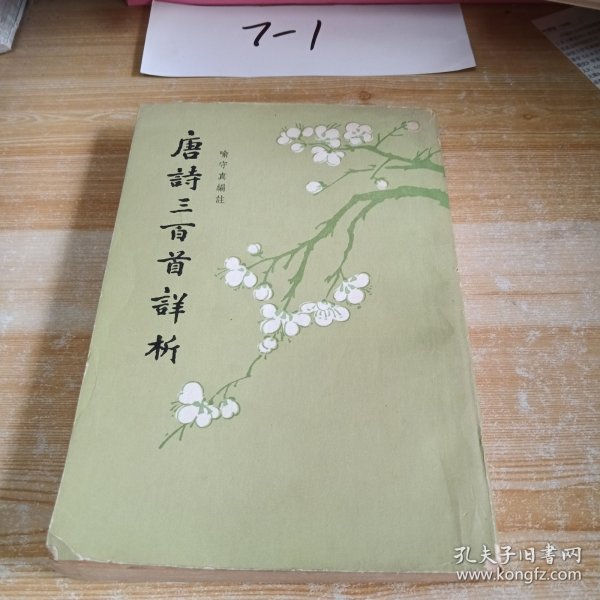 7-1
唐詩三百首詳析
喻守真編註
孔夫子旧书网
www.kongfz.com